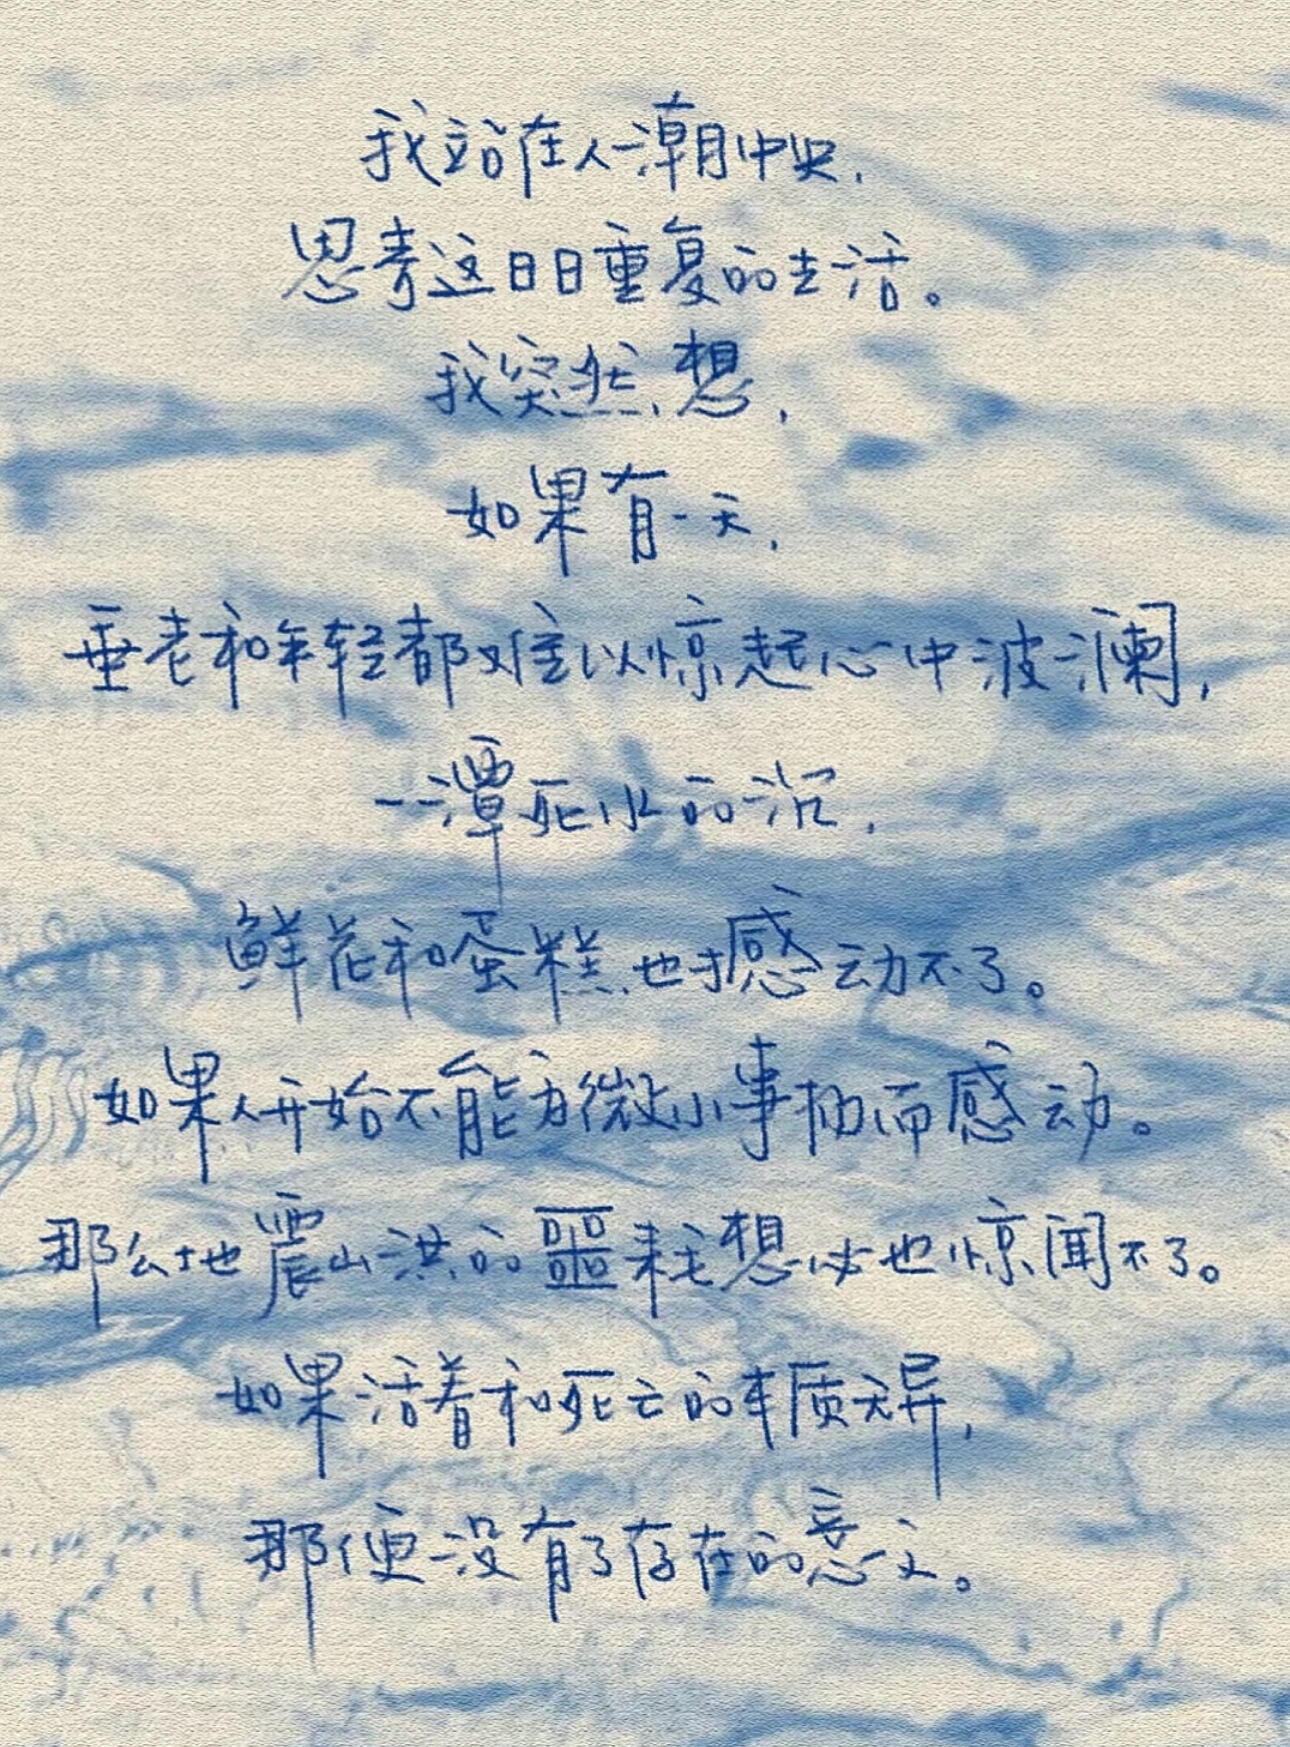 我站在人潮中央,
思考这日日重复的生活。
我突然想,
如果有一天,
垂老和年轻都难以惊起心中波澜,
一潭死水的沉,
鲜花和蛋糕也撼动不了。
如果人开始不能为微小事物而感动。
那么地震山洪的噩耗想必也惊闻不了。
如果活着和死亡的本质无异,
那便没有了存在的意义。